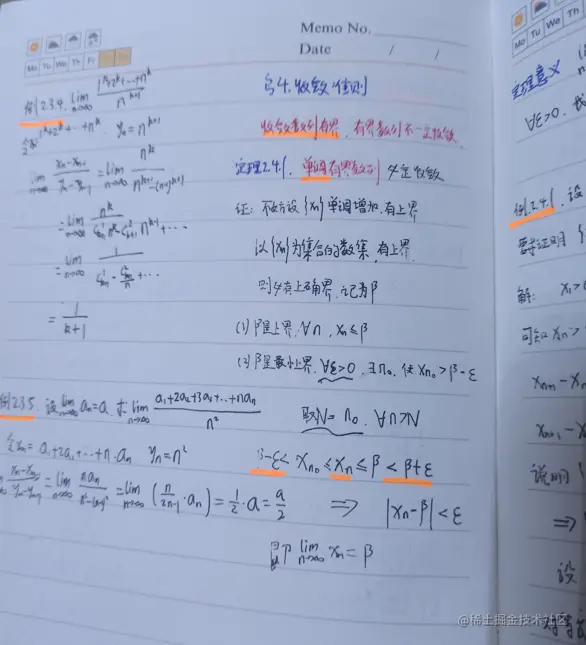 Memo No.
Date / /
Mo Tu We Th Fr
例2.3.4. lim n→∞ (1^k+2^k+…+n^k)/n^(k+1)
1^k+2^k+…+n^k. yn=n^(k+1)
lim n→∞ = lim n→∞ n^k/(n^(k+1)-(n-1)^(k+1))
= lim n→∞
= lim n→∞
= 1/(k+1)
例2.3.5. 设 lim n→∞ an=a. 求 lim n→∞ (a1+2a2+3a3+…+nan)/n²
令xn=a1+2a2+…+n·an yn=n²
= lim n→∞ nan/(n²-(n-1)²) = lim n→∞ (n/(2n-1)·an) = 1/2·a = a/2
§4.收敛准则
收敛数列有界,有界数列不一定收敛.
定理2.4.1. 单调有界数列必定收敛
证: 不妨设{xn}单调增加,有上界
以{xn}为集合的数集,有上界.
则必有上确界,记为β
(1) β是上界,∀n, xn≤β
(2) β是最小上界,∀ε>0, ∃n0, 使xn0>β-ε
取N=n0, ∀n>N
β-ε< xn0≤xn≤β<β+ε
⇒ |xn-β|<ε
即 lim n→∞ xn=β
Mo Tu We Th
定理意义
∀ε>0.
例2.4.1. 设
要证明{
解: x1>
可知xn>
说明
⇒
设
@稀土掘金技术社区